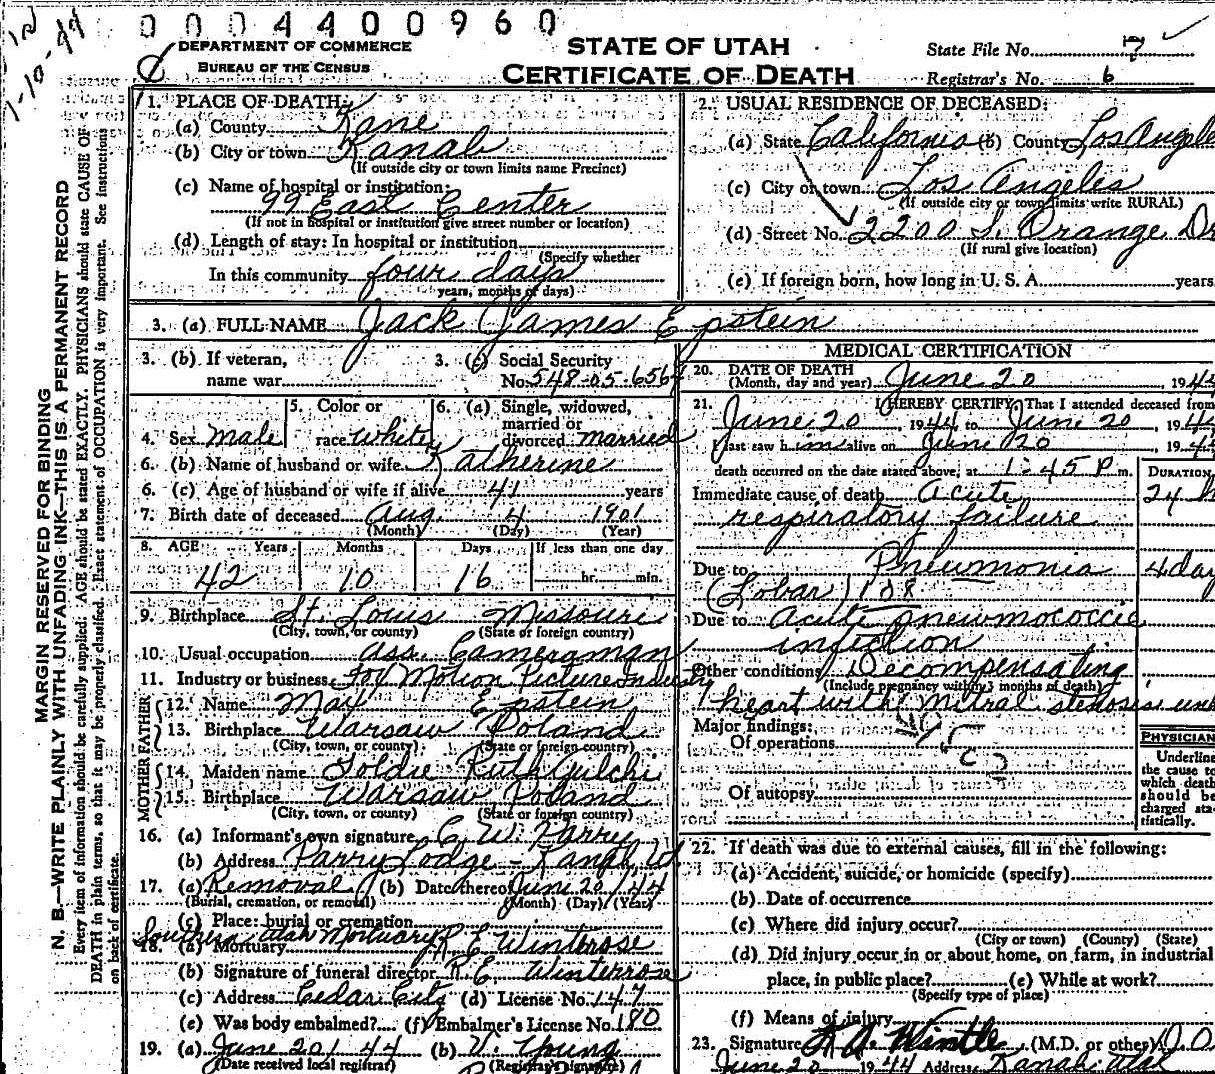 0004400960
1-10-44
DEPARTMENT OF COMMERCE
BUREAU OF THE CENSUS
STATE OF UTAH
CERTIFICATE OF DEATH
State File No. 7
Registrar's No. 6
MARGIN RESERVED FOR BINDING
N. B.—WRITE PLAINLY WITH UNFADING INK—THIS IS A PERMANENT RECORD
Every item of information should be carefully supplied; AGE should be stated EXACTLY. PHYSICIANS should state CAUSE OF
DEATH in plain terms, so that it may be properly classified. Exact statement of OCCUPATION is very important. See instructions
on back of certificate.
1. PLACE OF DEATH:
(a) County Kane
(b) City or town Kanab
(If outside city or town limits name Precinct)
(c) Name of hospital or institution:
99 East Center
(If not in hospital or institution give street number or location)
(d) Length of stay: In hospital or institution
(Specify whether
In this community four days
years, months or days)
2. USUAL RESIDENCE OF DECEASED:
(a) State California (b) County Los Angele
(c) City or town Los Angeles
(If outside city or town limits write RURAL)
(d) Street No. 2200 S. Orange Dr
(If rural give location)
(e) If foreign born, how long in U. S. A. years
3. (a) FULL NAME Jack James Epstein
3. (b) If veteran,
name war
3. (c) Social Security
No. 548-05-656
4. Sex Male
5. Color or
race White
6. (a) Single, widowed,
married or
divorced married
6. (b) Name of husband or wife Katherine
6. (c) Age of husband or wife if alive 41 years
7. Birth date of deceased Aug. 4 1901
(Month) (Day) (Year)
8. AGE Years Months Days If less than one day
42 10 16 hr. min.
9. Birthplace St. Louis Missouri
(City, town, or county) (State or foreign country)
10. Usual occupation Ass. Cameraman
11. Industry or business Fox Motion Picture Industry
FATHER
12. Name Max Epstein
13. Birthplace Warsaw Poland
(City, town, or county) (State or foreign country)
MOTHER
14. Maiden name Goldie Ruth
15. Birthplace Warsaw Poland
(City, town, or county) (State or foreign country)
16. (a) Informant's own signature C. W. Parry
(b) Address Parry Lodge - Kanab Ut
17. (a) Removal (b) Date thereof June 20 / 44
(Burial, cremation, or removal) (Month) (Day) (Year)
(c) Place: burial or cremation
Southern Utah Mortuary
18. (a) Mortuary R E Winterose
(b) Signature of funeral director R. E. Winterrose
(c) Address Cedar City (d) License No. 147
(e) Was body embalmed? (f) Embalmer's License No. 180
19. (a) June 20 / 44 (b) V. Young
(Date received local registrar) (Registrar's signature)
MEDICAL CERTIFICATION
20. DATE OF DEATH
(Month, day and year) June 20, 1944
21. I HEREBY CERTIFY, That I attended deceased from
June 20, 1944, to June 20, 194
I last saw him alive on June 20, 194
death occurred on the date stated above, at 1:45 P m.
DURATION
Immediate cause of death Acute 24
respiratory failure
Due to Pneumonia 4 day
(Lobar) 108
Due to Acute pneumococcic
infection
Other conditions Decompensating
(Include pregnancy within 3 months of death)
heart with mitral stenosis
Major findings:
Of operations
Of autopsy
PHYSICIAN
Underline
the cause to
which death
should be
charged sta-
tistically.
22. If death was due to external causes, fill in the following:
(a) Accident, suicide, or homicide (specify)
(b) Date of occurrence
(c) Where did injury occur?
(City or town) (County) (State)
(d) Did injury occur in or about home, on farm, in industrial
place, in public place? (e) While at work?
(Specify type of place)
(f) Means of injury
23. Signature Wintle (M.D. or other) D.O.
June 20 1944 Address Kanab Utah